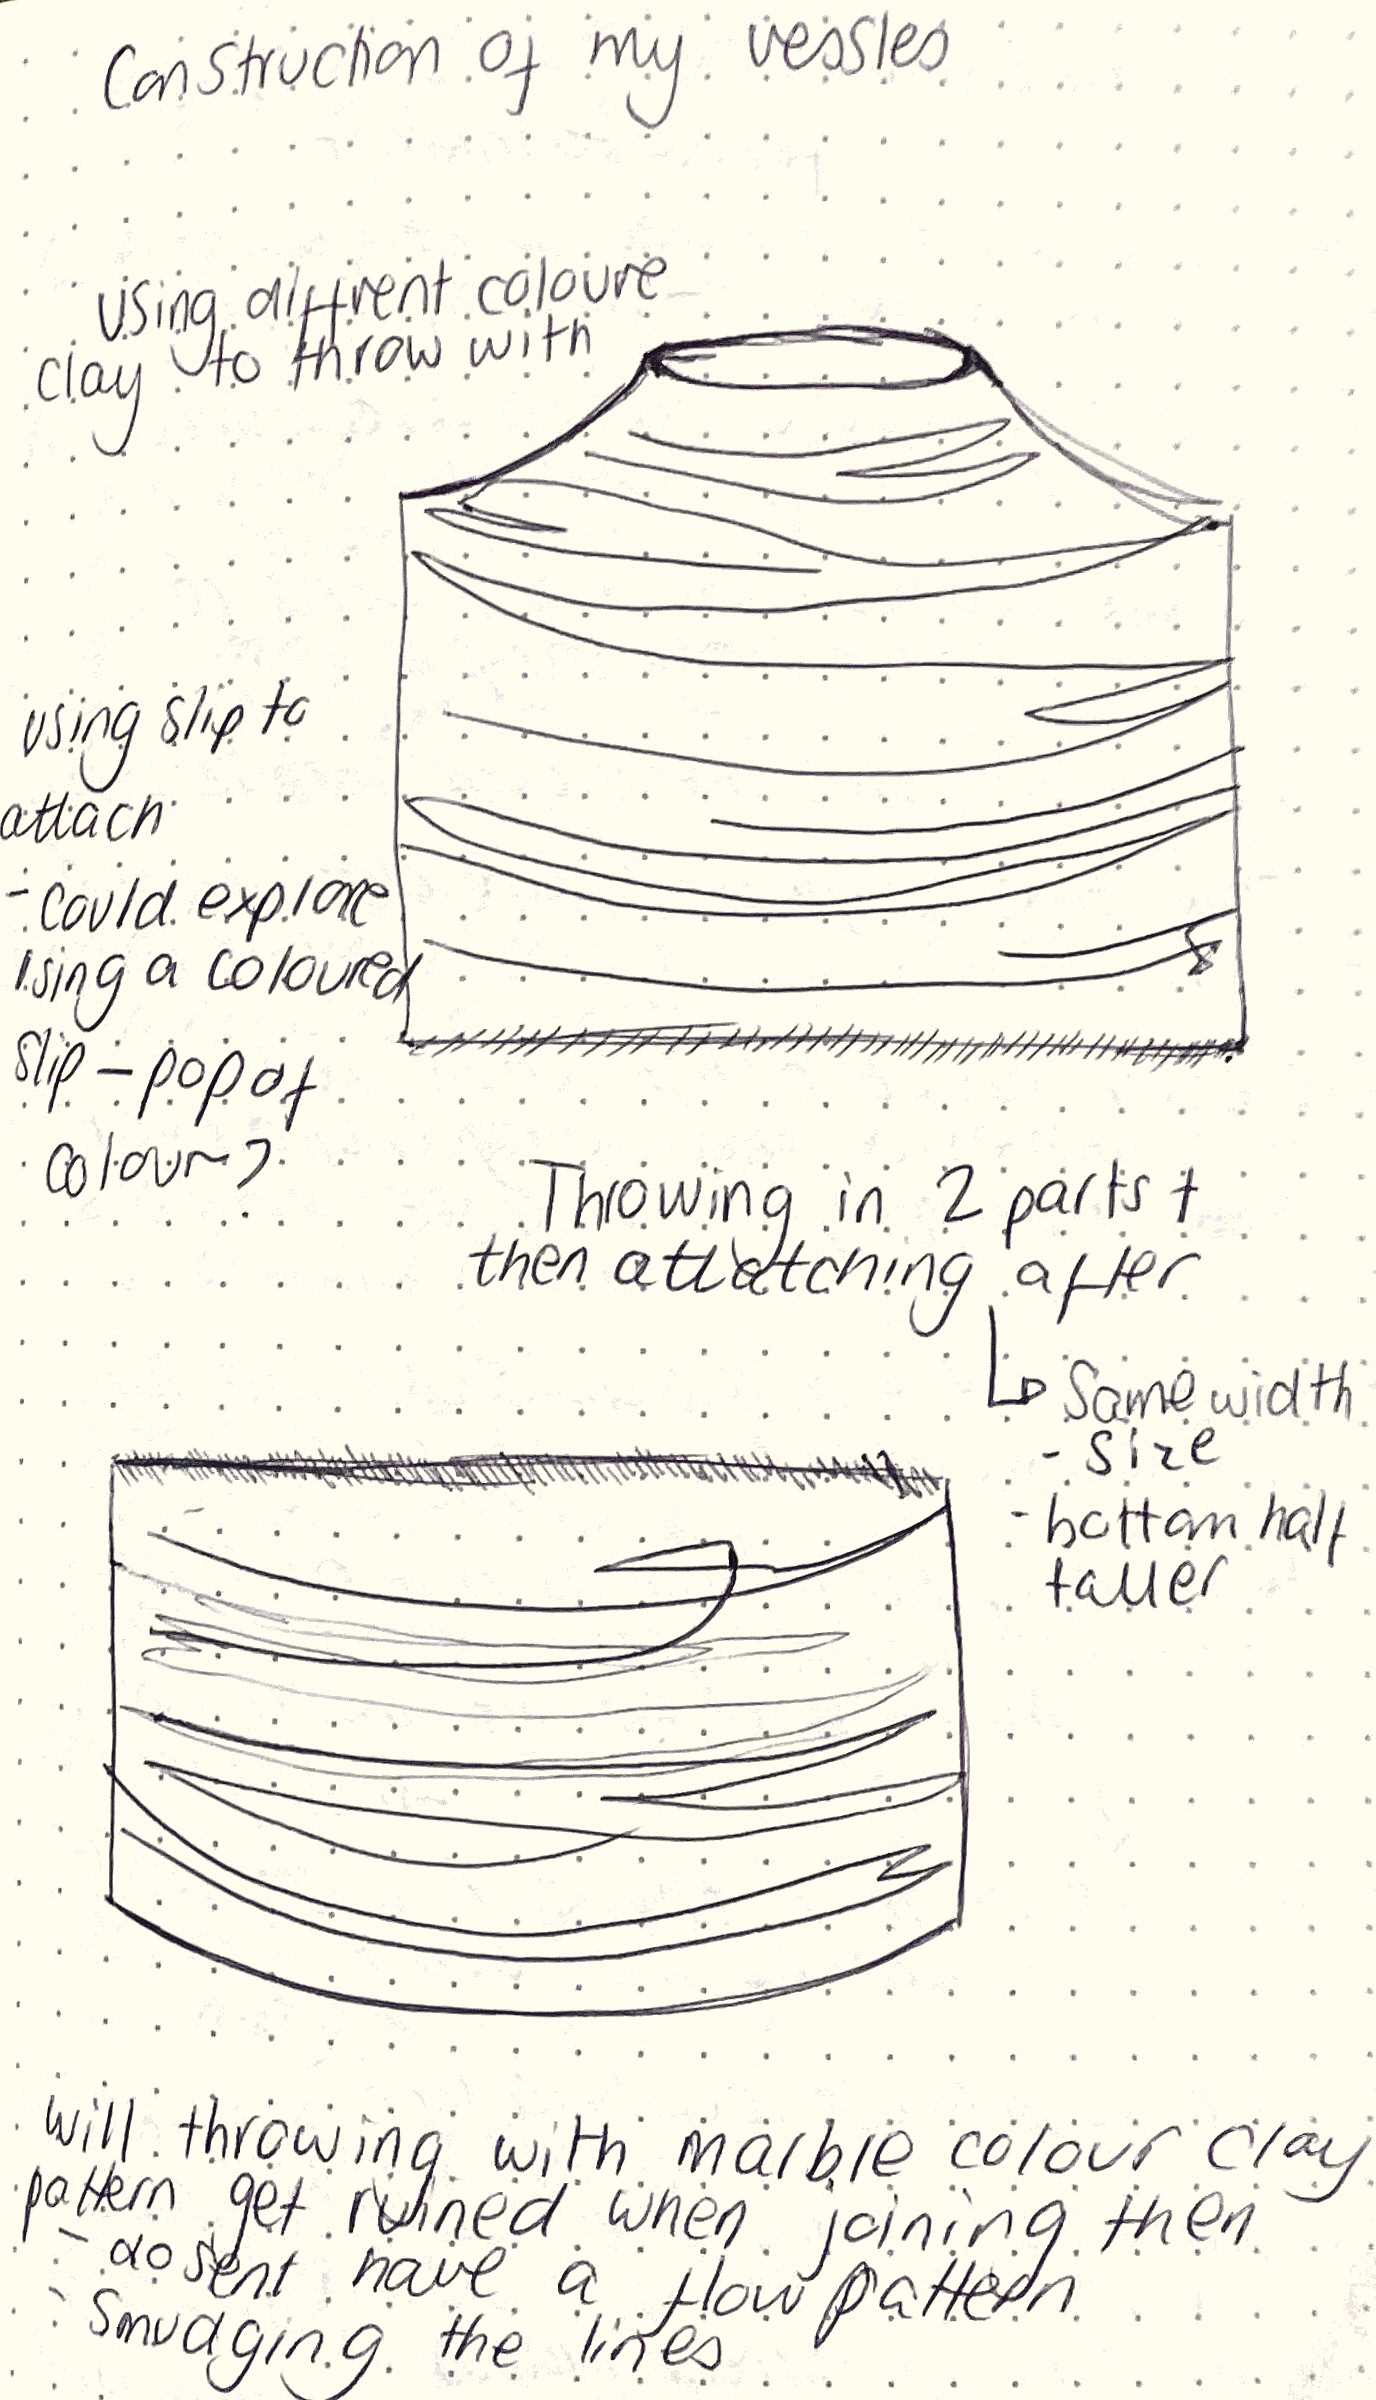 Construction of my vessles
using diffrent coloure
clay to throw with
using slip to
attach
- could explore
using a coloured
slip - pop of
colour?
Throwing in 2 parts +
then attatching after
Same width
- size
- bottom half
taller
will throwing with marble colour clay
pattern get ruined when joining then
- dosent have a flow pattern
- Smudging the lines